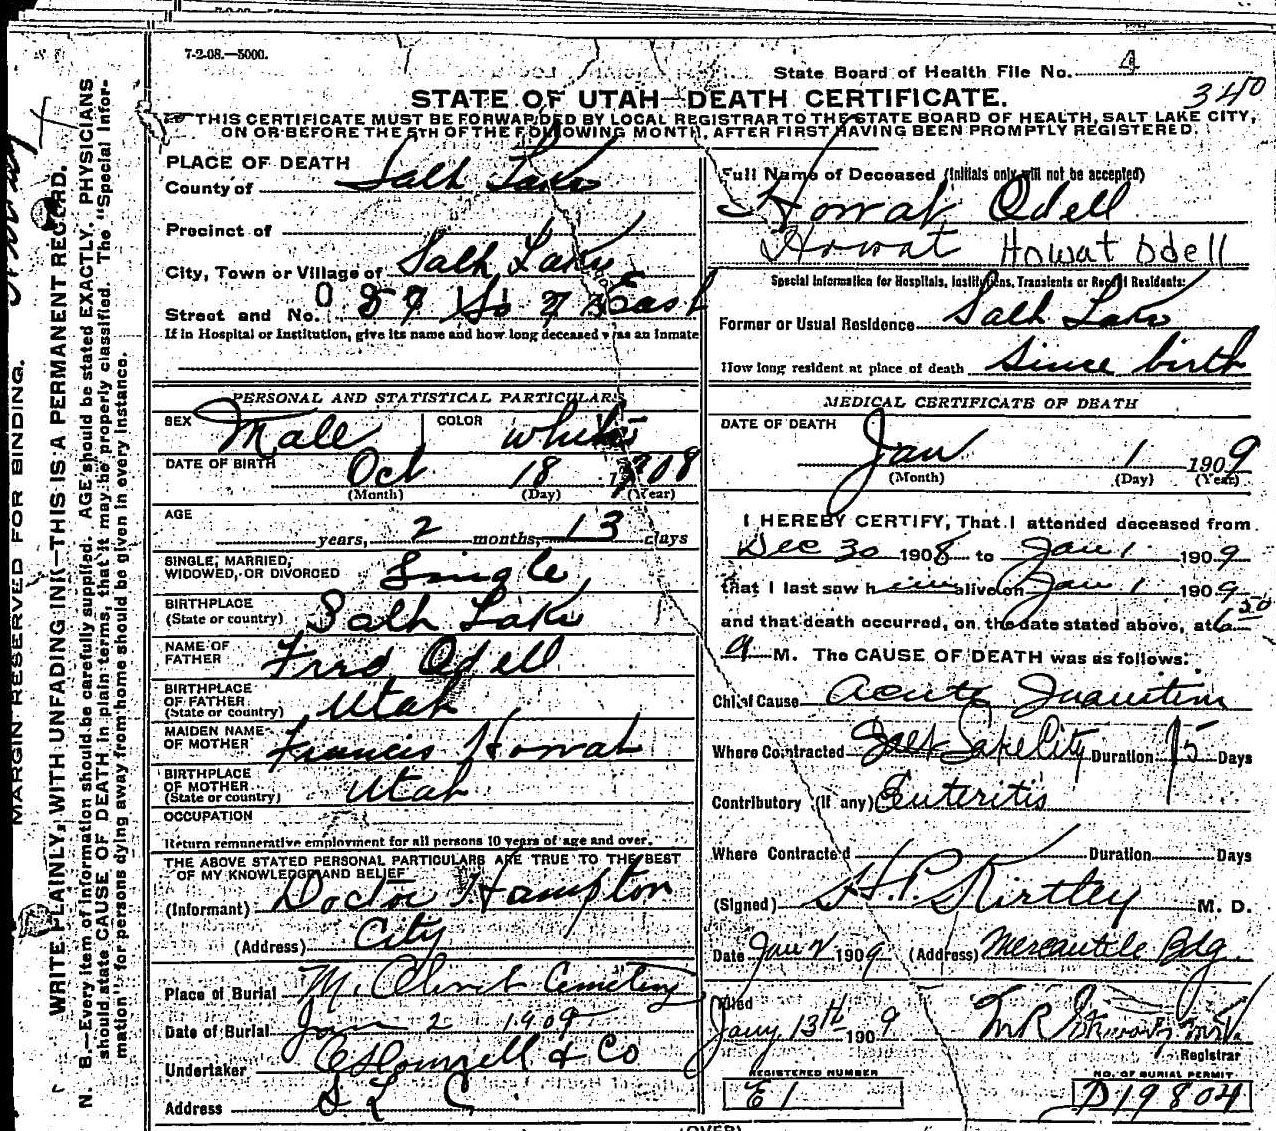 7-2-08.—5000.
State Board of Health File No. 4
340
STATE OF UTAH—DEATH CERTIFICATE.
THIS CERTIFICATE MUST BE FORWARDED BY LOCAL REGISTRAR TO THE STATE BOARD OF HEALTH, SALT LAKE CITY,
ON OR BEFORE THE 5TH OF THE FOLLOWING MONTH, AFTER FIRST HAVING BEEN PROMPTLY REGISTERED.
PLACE OF DEATH
County of Salt Lake
Precinct of
City, Town or Village of Salt Lake
Street and No. 87 So 7 East
If in Hospital or Institution, give its name and how long deceased was an inmate
Full Name of Deceased (Initials only will not be accepted)
Howat Odell
Howat Howat Odell
Special Information for Hospitals, Institutions, Transients or Recent Residents:
Former or Usual Residence Salt Lake
How long resident at place of death Since birth
PERSONAL AND STATISTICAL PARTICULARS
SEX Male COLOR white
DATE OF BIRTH Oct 18 1908
(Month) (Day) (Year)
AGE
years, 2 months, 13 days
SINGLE, MARRIED,
WIDOWED, OR DIVORCED Single
BIRTHPLACE
(State or country) Salt Lake
NAME OF
FATHER Fred Odell
BIRTHPLACE
OF FATHER
(State or country) Utah
MAIDEN NAME
OF MOTHER Francis Howat
BIRTHPLACE
OF MOTHER
(State or country) Utah
OCCUPATION
Return remunerative employment for all persons 10 years of age and over.
THE ABOVE STATED PERSONAL PARTICULARS ARE TRUE TO THE BEST
OF MY KNOWLEDGE AND BELIEF
(Informant) Doctor Hampton
(Address) City
Place of Burial Mt. Olivet Cemetery
Date of Burial Jan 2 1909
Undertaker & Co
Address S L C
MEDICAL CERTIFICATE OF DEATH
DATE OF DEATH
Jan 1 1909
(Month) (Day) (Year)
I HEREBY CERTIFY, That I attended deceased from
Dec 30 1908 to Jan 1 1909
that I last saw him alive on Jan 1 1909
and that death occurred, on the date stated above, at 6 50
a M. The CAUSE OF DEATH was as follows:
Chief Cause Acute Inanition
Where Contracted Salt Lake City Duration 15 Days
Contributory (if any) Enteritis
Where Contracted Duration Days
(Signed) H. P. Kirtley M. D.
Date Jan 2 1909 (Address) Mercantile Bdg.
Filed
Jany 13th 1909 M R
Registrar
REGISTERED NUMBER
E 1
NO. OF BURIAL PERMIT
D19804
(OVER)
MARGIN RESERVED FOR BINDING.
WRITE PLAINLY, WITH UNFADING INK—THIS IS A PERMANENT RECORD.
N. B.—Every item of information should be carefully supplied. AGE should be stated EXACTLY. PHYSICIANS
should state CAUSE OF DEATH in plain terms, that it may be properly classified. The "Special Infor-
mation" for persons dying away from home should be given in every instance.